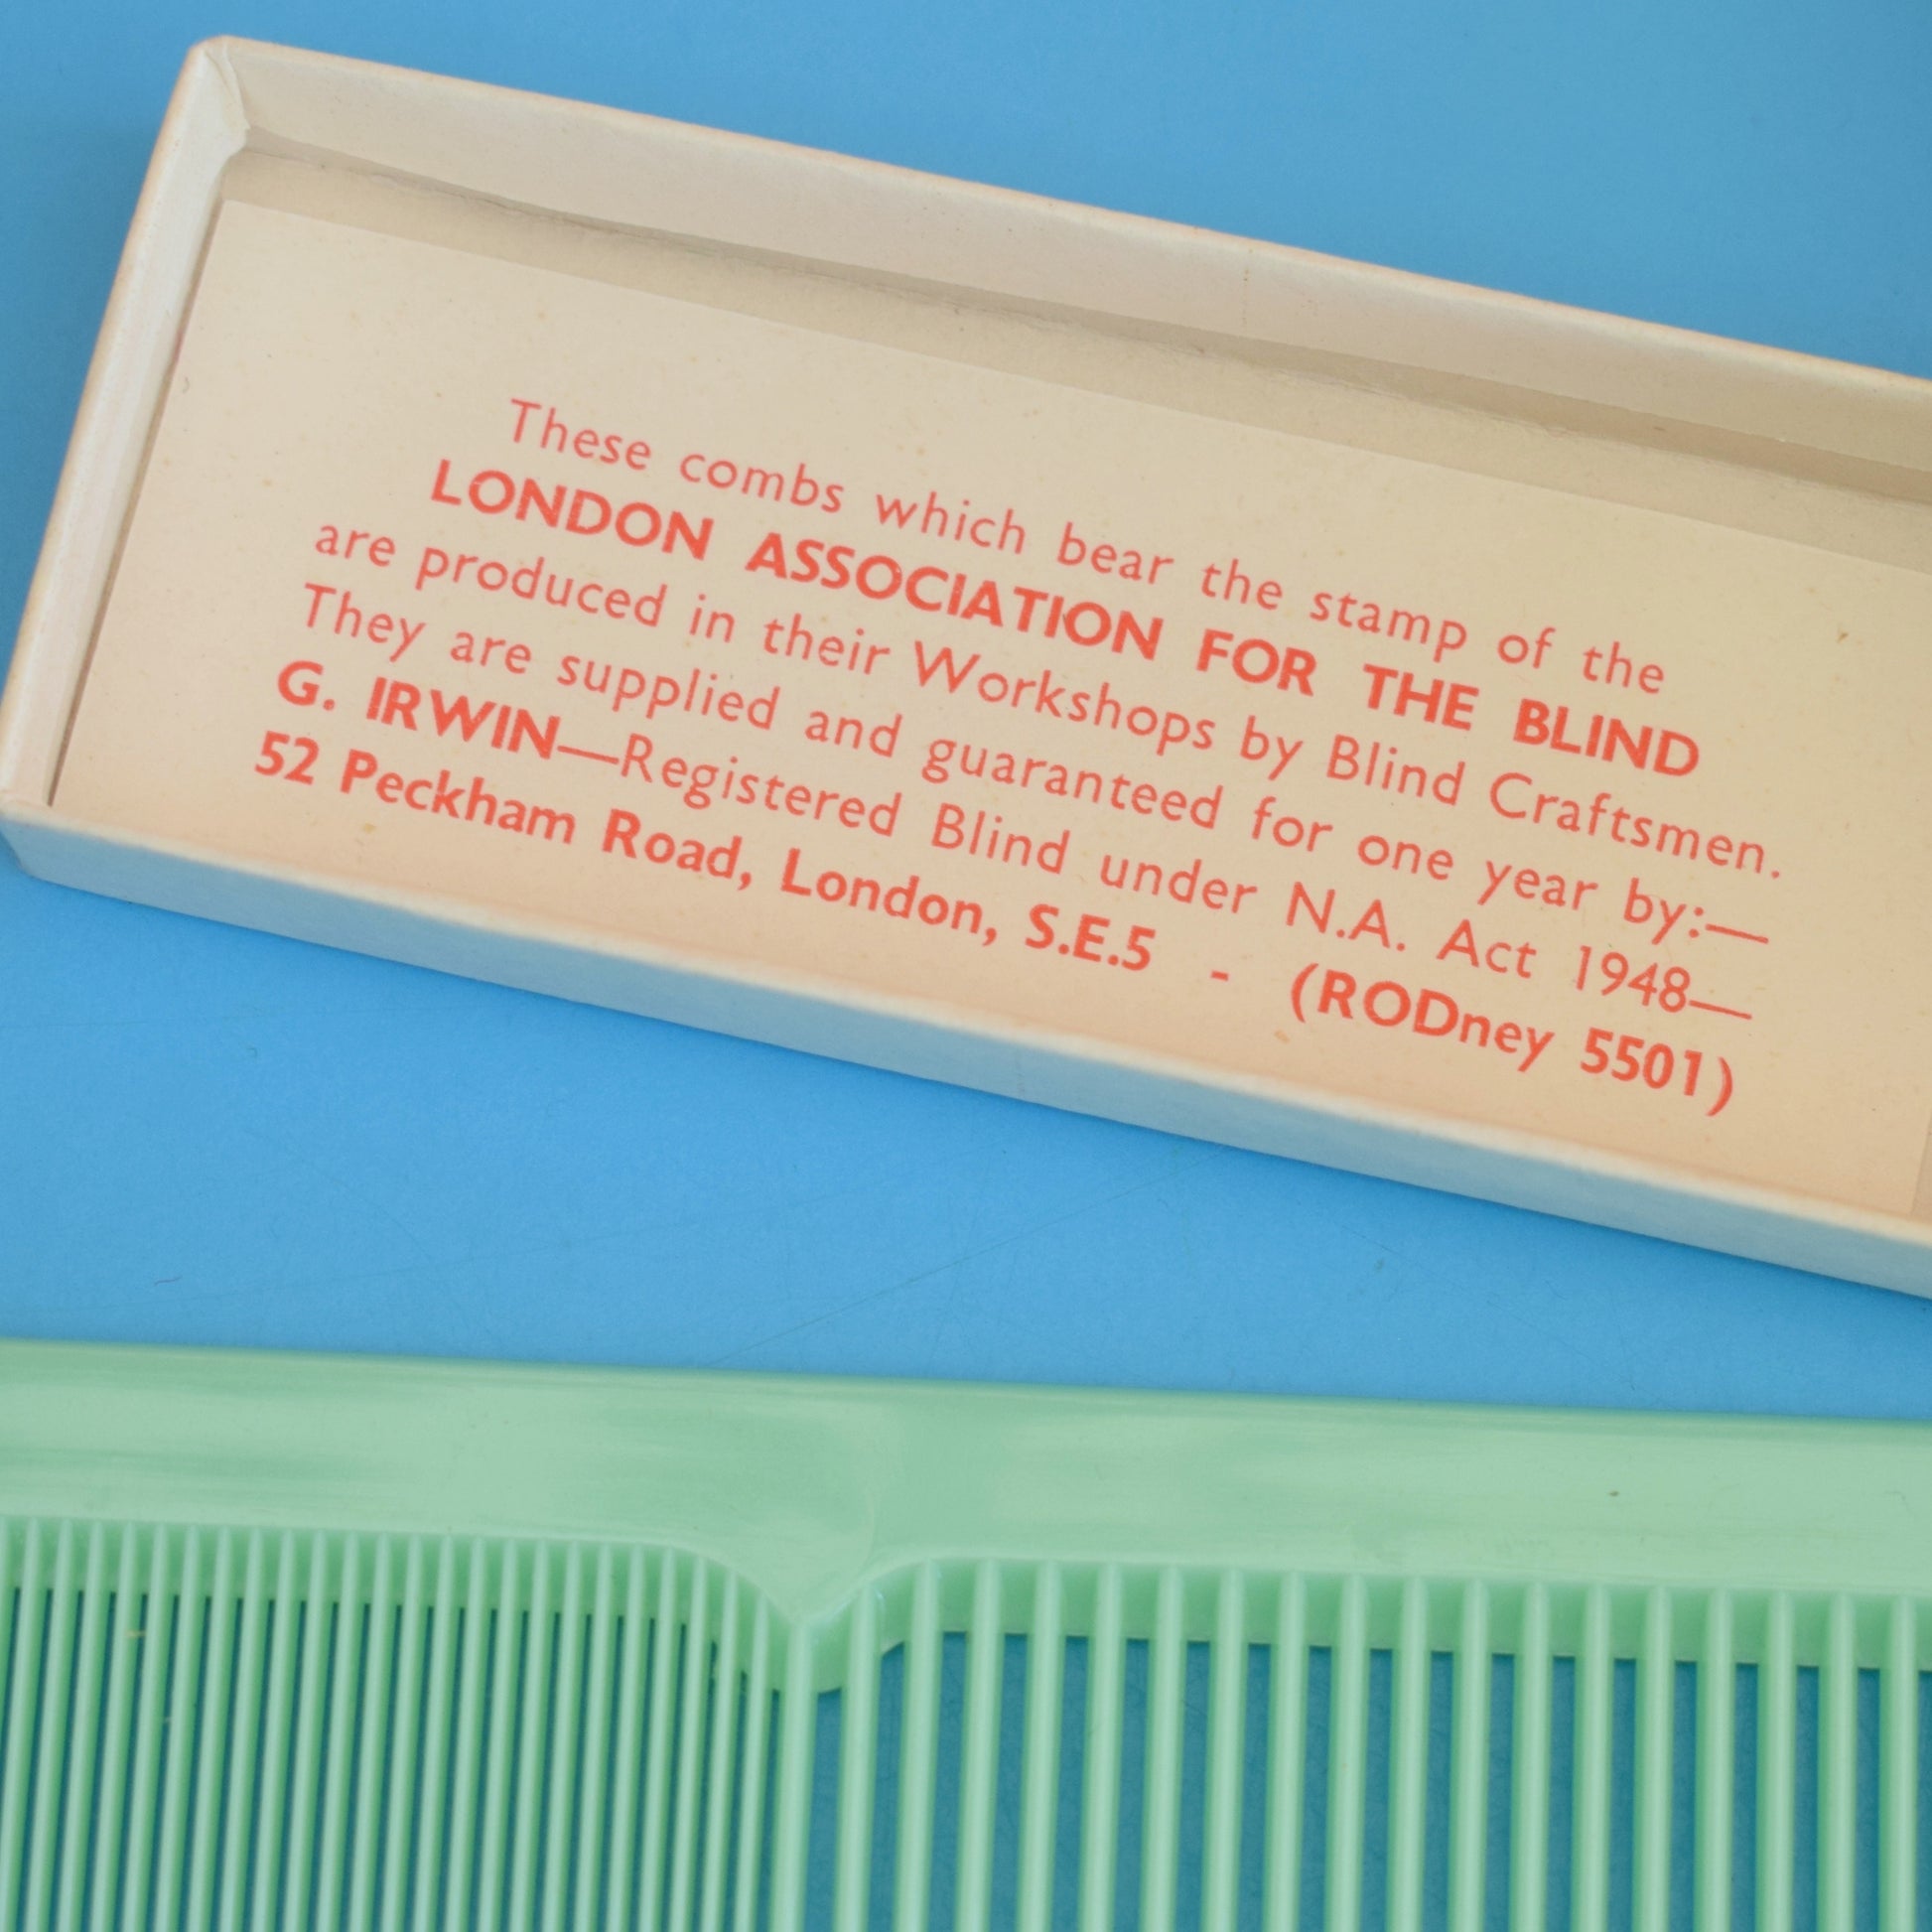 These combs which bear the stamp of the
LONDON ASSOCIATION FOR THE BLIND
are produced in their Workshops by Blind Craftsmen.
They are supplied and guaranteed for one year by:—
G. IRWIN—Registered Blind under N.A. Act 1948—
52 Peckham Road, London, S.E.5 - (RODney 5501)